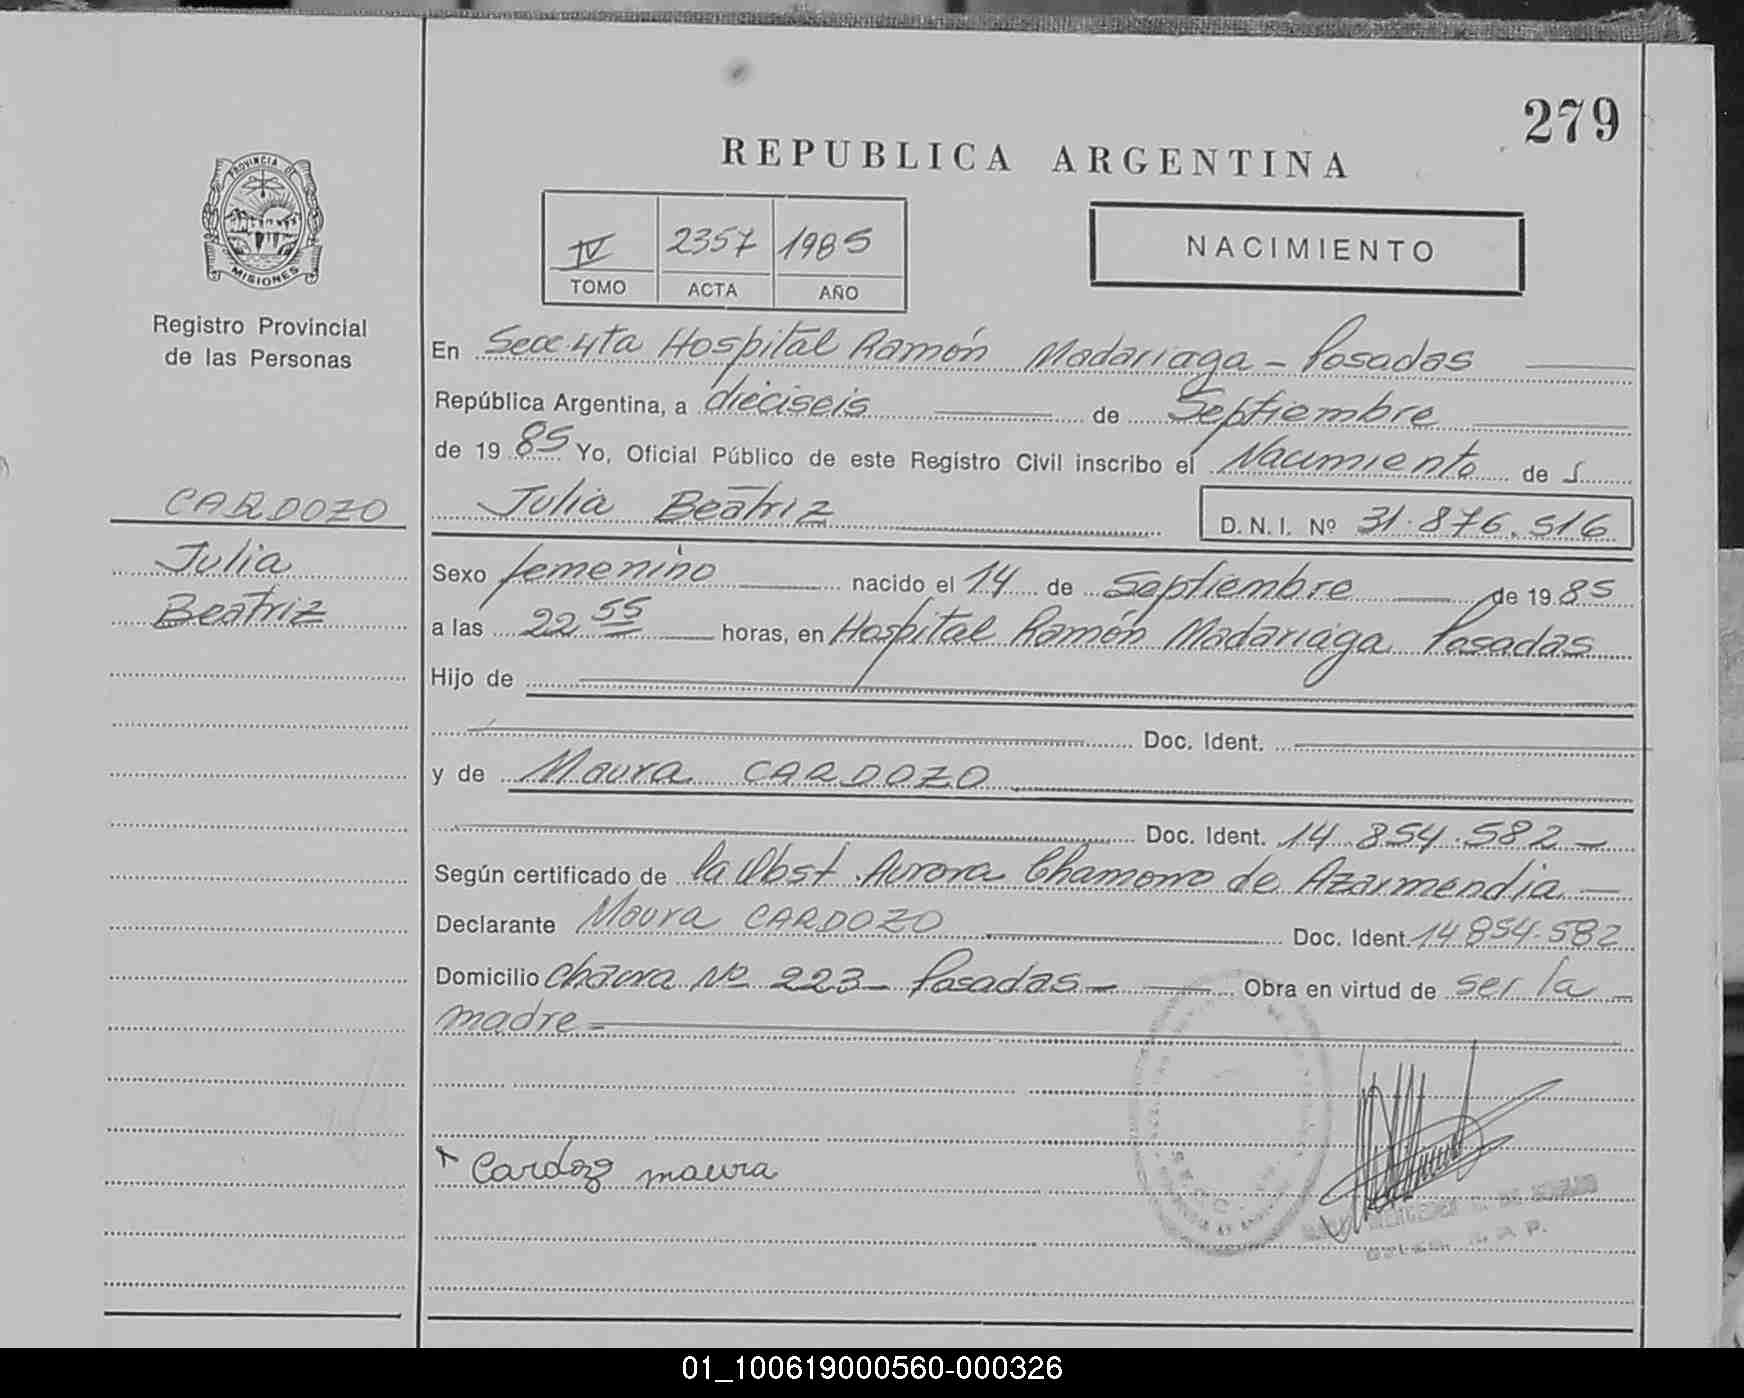 279
REPUBLICA ARGENTINA
PROVINCIA DE
MISIONES
Registro Provincial
de las Personas
IV 2357 1985
TOMO ACTA AÑO
NACIMIENTO
En Secc. 4ta Hospital Ramón Madariaga - Posadas
República Argentina, a dieciseis de Septiembre
de 19 85 Yo, Oficial Público de este Registro Civil inscribo el Nacimiento de
CARDOZO
Julia Beatriz
D. N. I. Nº 31.876.516
Julia
Beatriz
Sexo femenino nacido el 14 de Septiembre de 19 85
a las 22 55 horas, en Hospital Ramón Madariaga Posadas
Hijo de
Doc. Ident.
y de Maura CARDOZO
Doc. Ident. 14.854.582 -
Según certificado de la Obst. Aurora Chamorro de Azarmendia -
Declarante Maura CARDOZO Doc. Ident. 14.854.582
Domicilio Chacra Nº 223 - Posadas - Obra en virtud de ser la
madre -
Cardozo maura
01_100619000560-000326